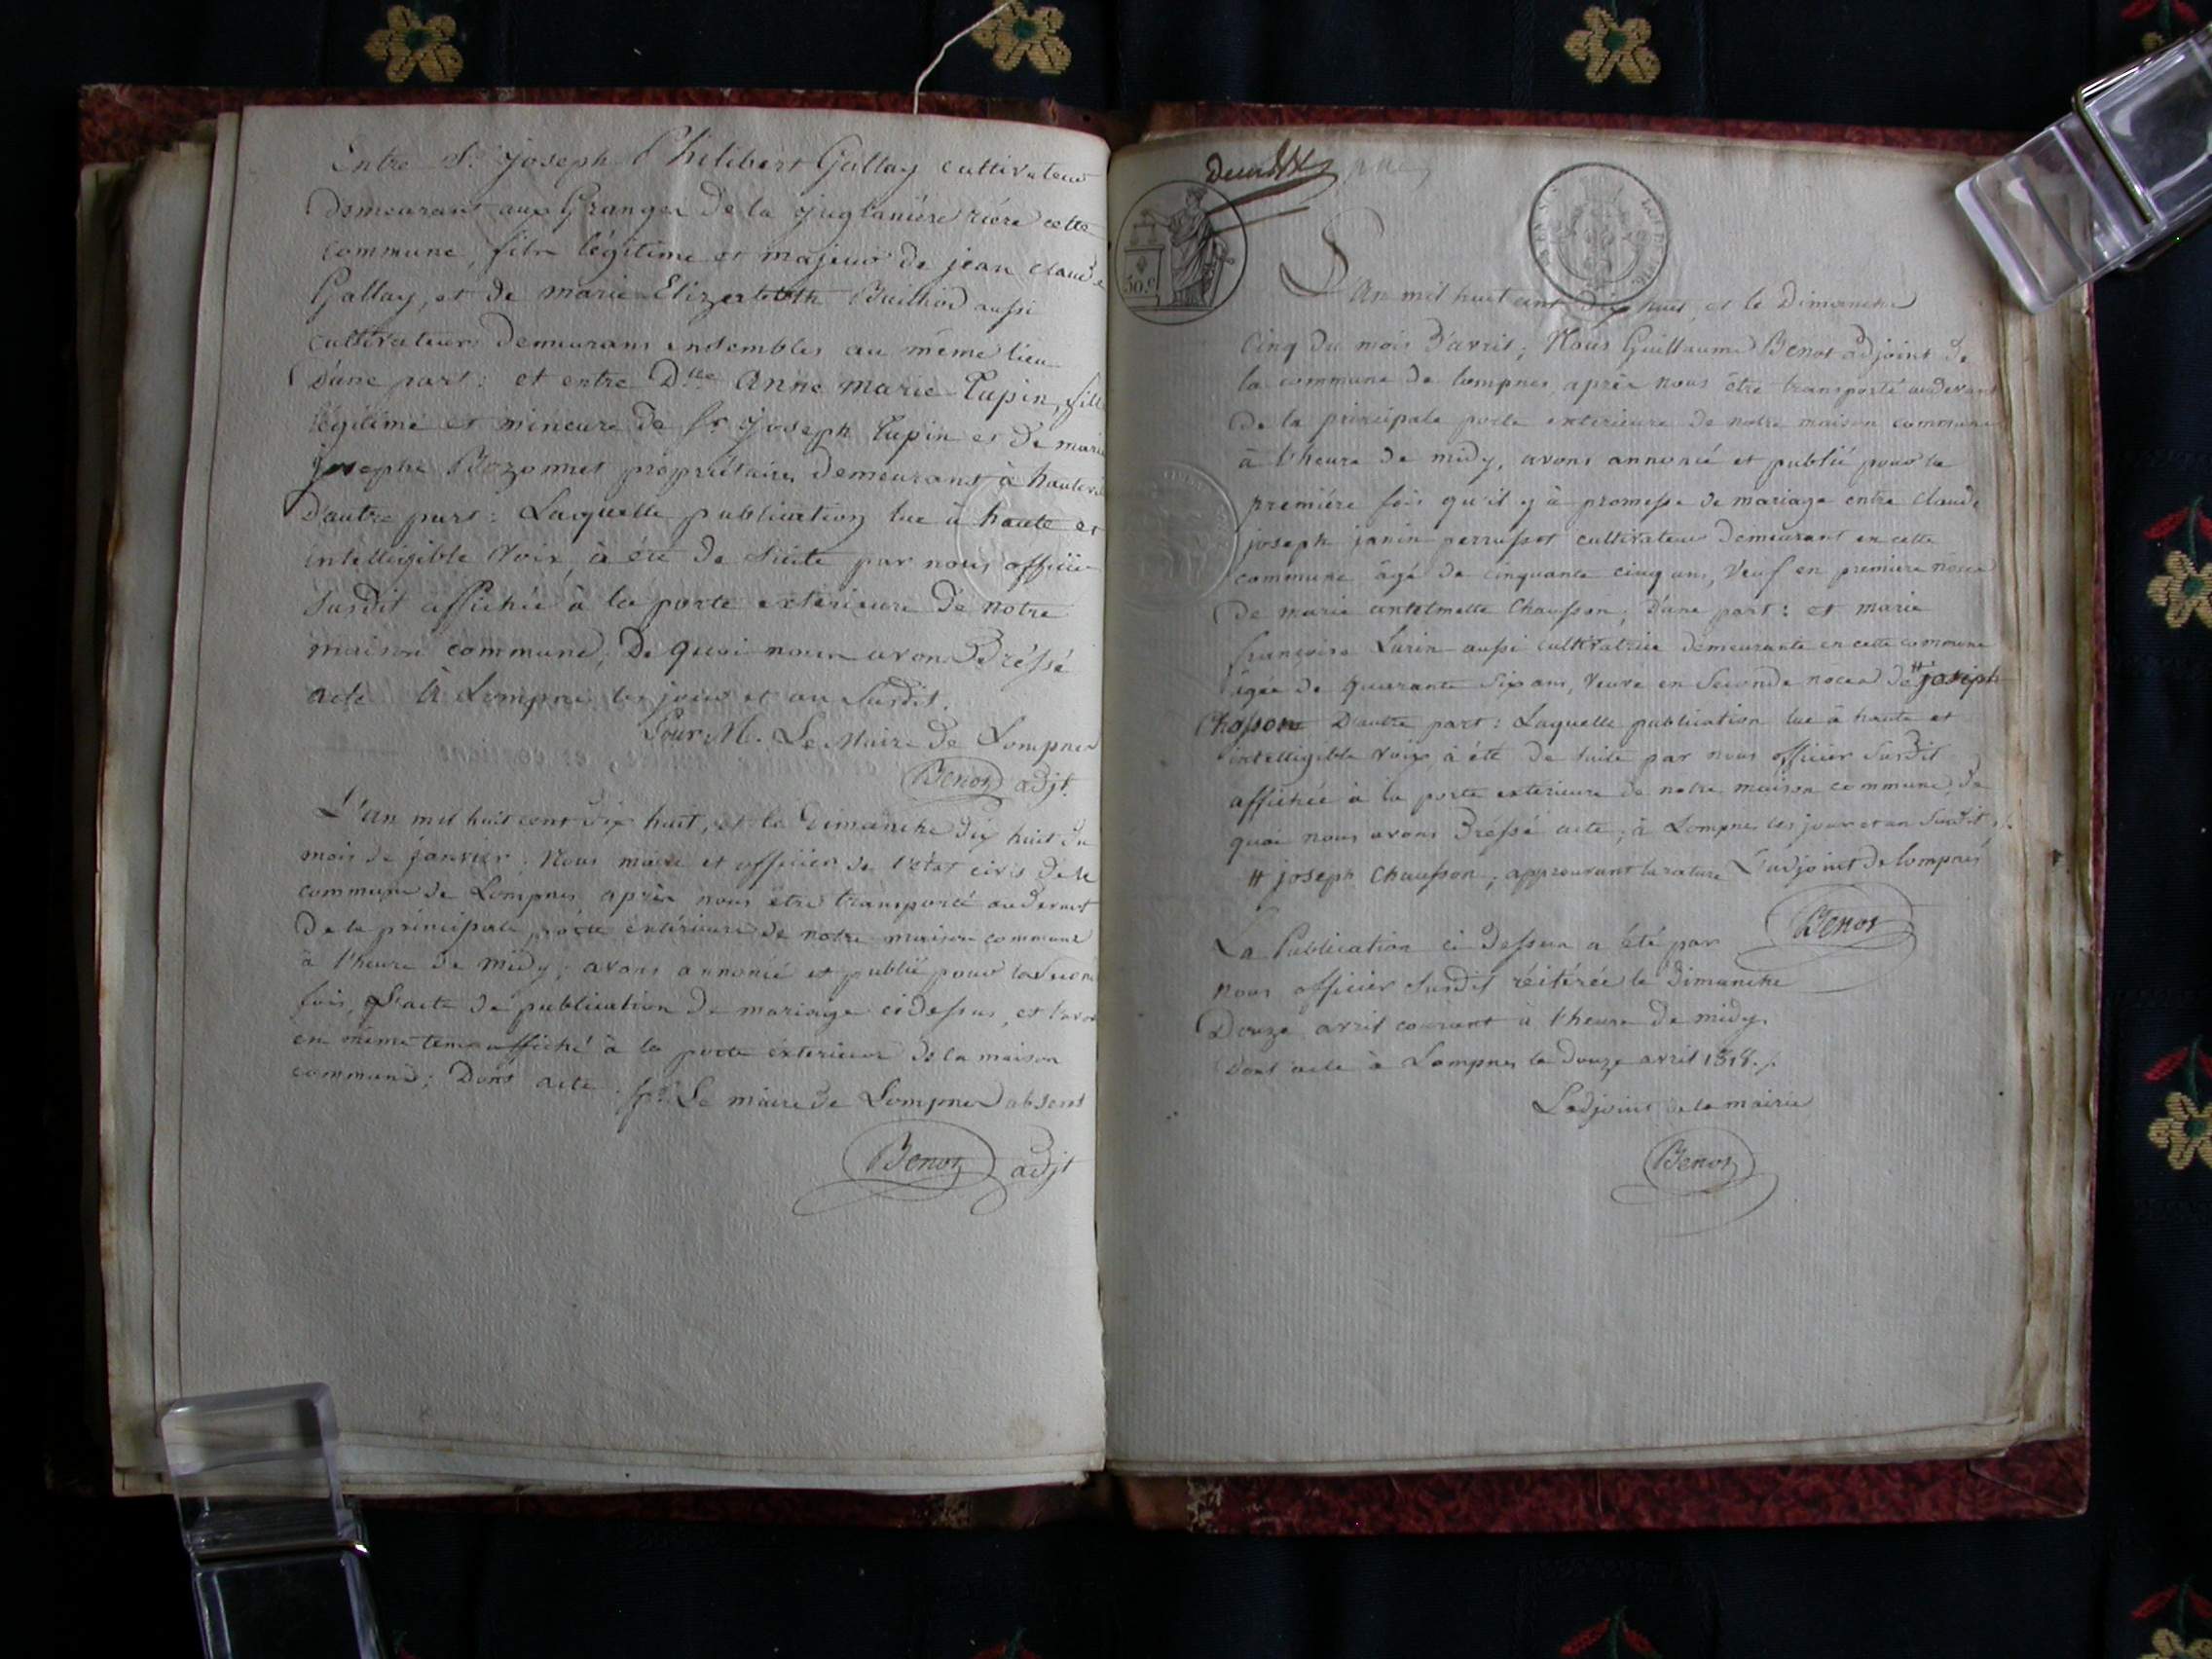 Entre Sr. joseph Philibert Gallay cultivateur
Demeurant aux Granges De la juglanière rière cette
commune, fils légitime et majeur de jean claude
Gallay, et de marie Elizerbeth Builliod aussi
cultivateurs demeurans ensembles au même lieu
D'une part: et entre Dlle anne marie Tupin, fille
légitime et mineure de Sr. joseph Tupin et de marie
josephe Bozonnet propriétaires demeurant à hautev
D'autre part: Laquelle publication lue à haute et
intelligible voix, à été de suite par nous officier
susdit affichée à la porte exterieure De notre
maison commune, De quoi nous avons Dréssé
acte à Lompnes les jour et an susdit.
Pour M. Le Maire de Lompnes
Benoz adjt.
L'an mil huit cent dix huit, et le Dimanche dix huit du
mois de janvier; Nous maire et officier de l'état civil de la
commune de Lompnes, après nous être transporté audevant
De la principale porte extérieure de notre maison commune
à l'heure de midy; avons annoncé et publié pour la second
fois, L'acte de publication de mariage cidessus, et l'avons
en même tems affiché à la porte exterieur de la maison
commune; Dont acte. pr. Le maire de Lompnes absent
Benoz adjt
50.c
L'An mil huit cent dix huit, et le Dimanche
Cinq du mois D'avril; Nous Guillaume Benoz adjoint de
la commune de lompnes, après nous être transporté audevant
De la principale porte exterieure de notre maison commune
à l'heure de midy, avons annoncé et publié pour la
première fois qu'il y à promesse de mariage entre Claude
joseph janin perrussot cultivateur demeurant en cette
commune âgé de cinquante cinq ans, Veuf en premiere noces
De marie antelmette Chausson; D'une part: et marie
françoise Larin aussi cultivatrice demeurante en cette commune
agée de quarante six ans, veuve en seconde noces de # joseph
Chasson D'autre part: Laquelle publication lue à haute et
intelligible voix, à été de suite par nous officier susdit
affichée à la porte exterieure de notre maison commune, de
quoi nous avons Dréssé acte; à Lompnes les jour et an susdit,
# joseph Chausson; approuvant la rature L'adjoint de lompnes
Benoz
La Publication ci dessus a été par
nous officier susdit réitérée le Dimanche
Douze avril courant à l'heure de midy.
Dont acte à Lompnes le douze avril 1818.
L'adjoint de la mairie
Benoz